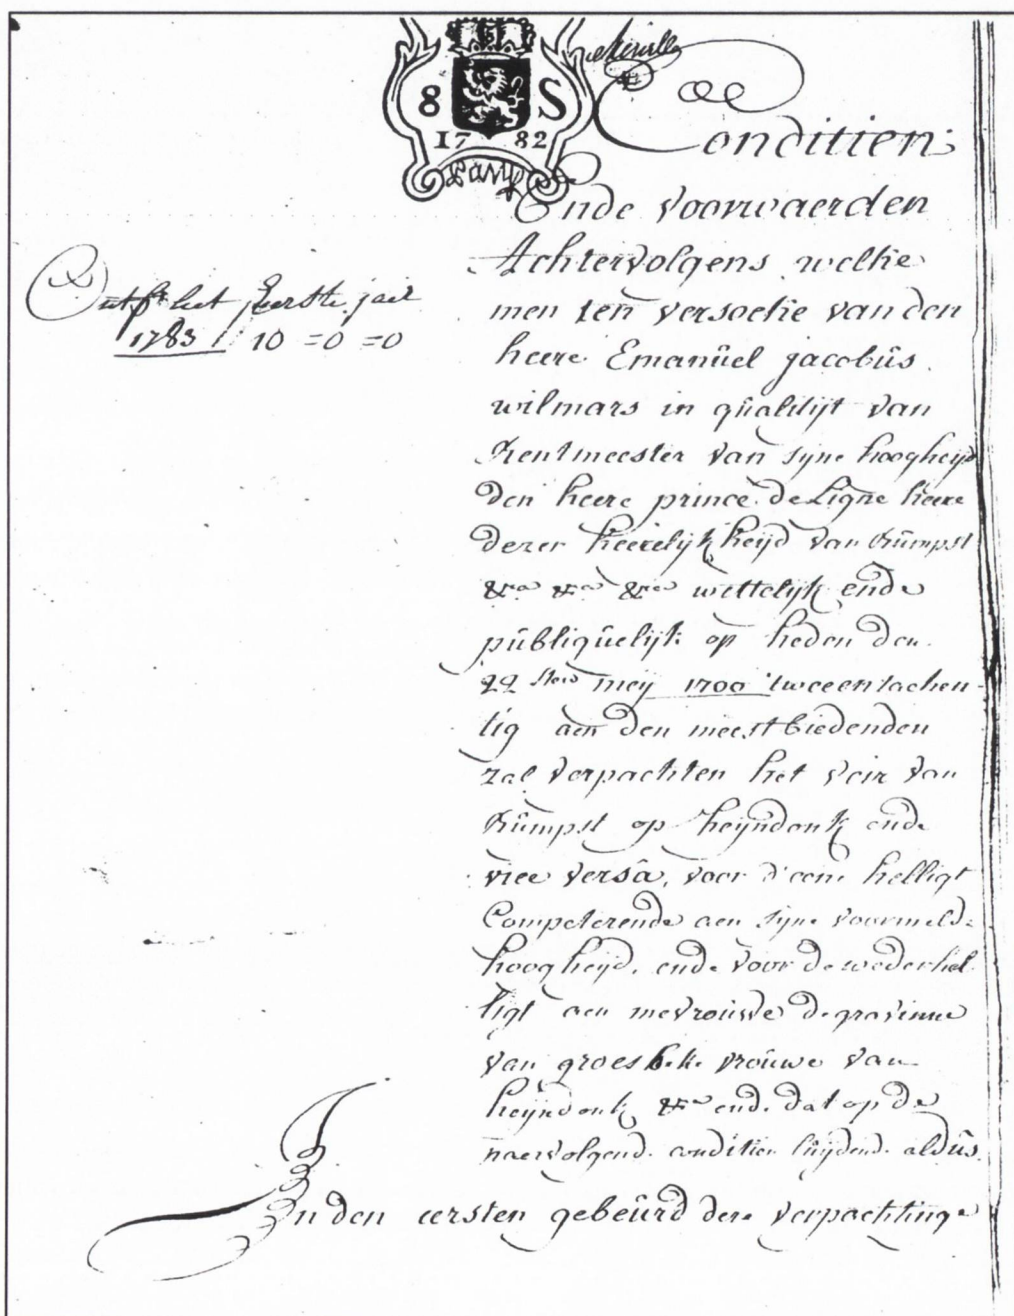 8 S
17 82
Conditien
Ende voorwaerden
Achtervolgens welke
men ten versoeke van den
heere Emanüel jacobüs
wilmars in qüalitijt van
Rentmeester van sijne hoogheijd
den heere prince de Ligne heere
dezer heerelijkheijd van Rümpst
&ra &ra &ra wettelijk ende
püblicqüelijk op heden den
22 sten meij 1700 tweeentachen-
tig aen den meestbiedenden
zal verpachten het veir van
Rümpst op heijndonk ende
vice versâ, voor d'eene helligt
Competerende aen sijne voormelde
hoogheijd, ende voor de wederhel
ligt aen mevroüwe de gravinne
van groesbeke vroüwe van
heijndonk &ra ende dat op de
naervolgende conditien lüijdende aldüs
In den eersten gebeürd dese verpachtinge
Ontfr het Eerste jaer
1783 10 =0 =0